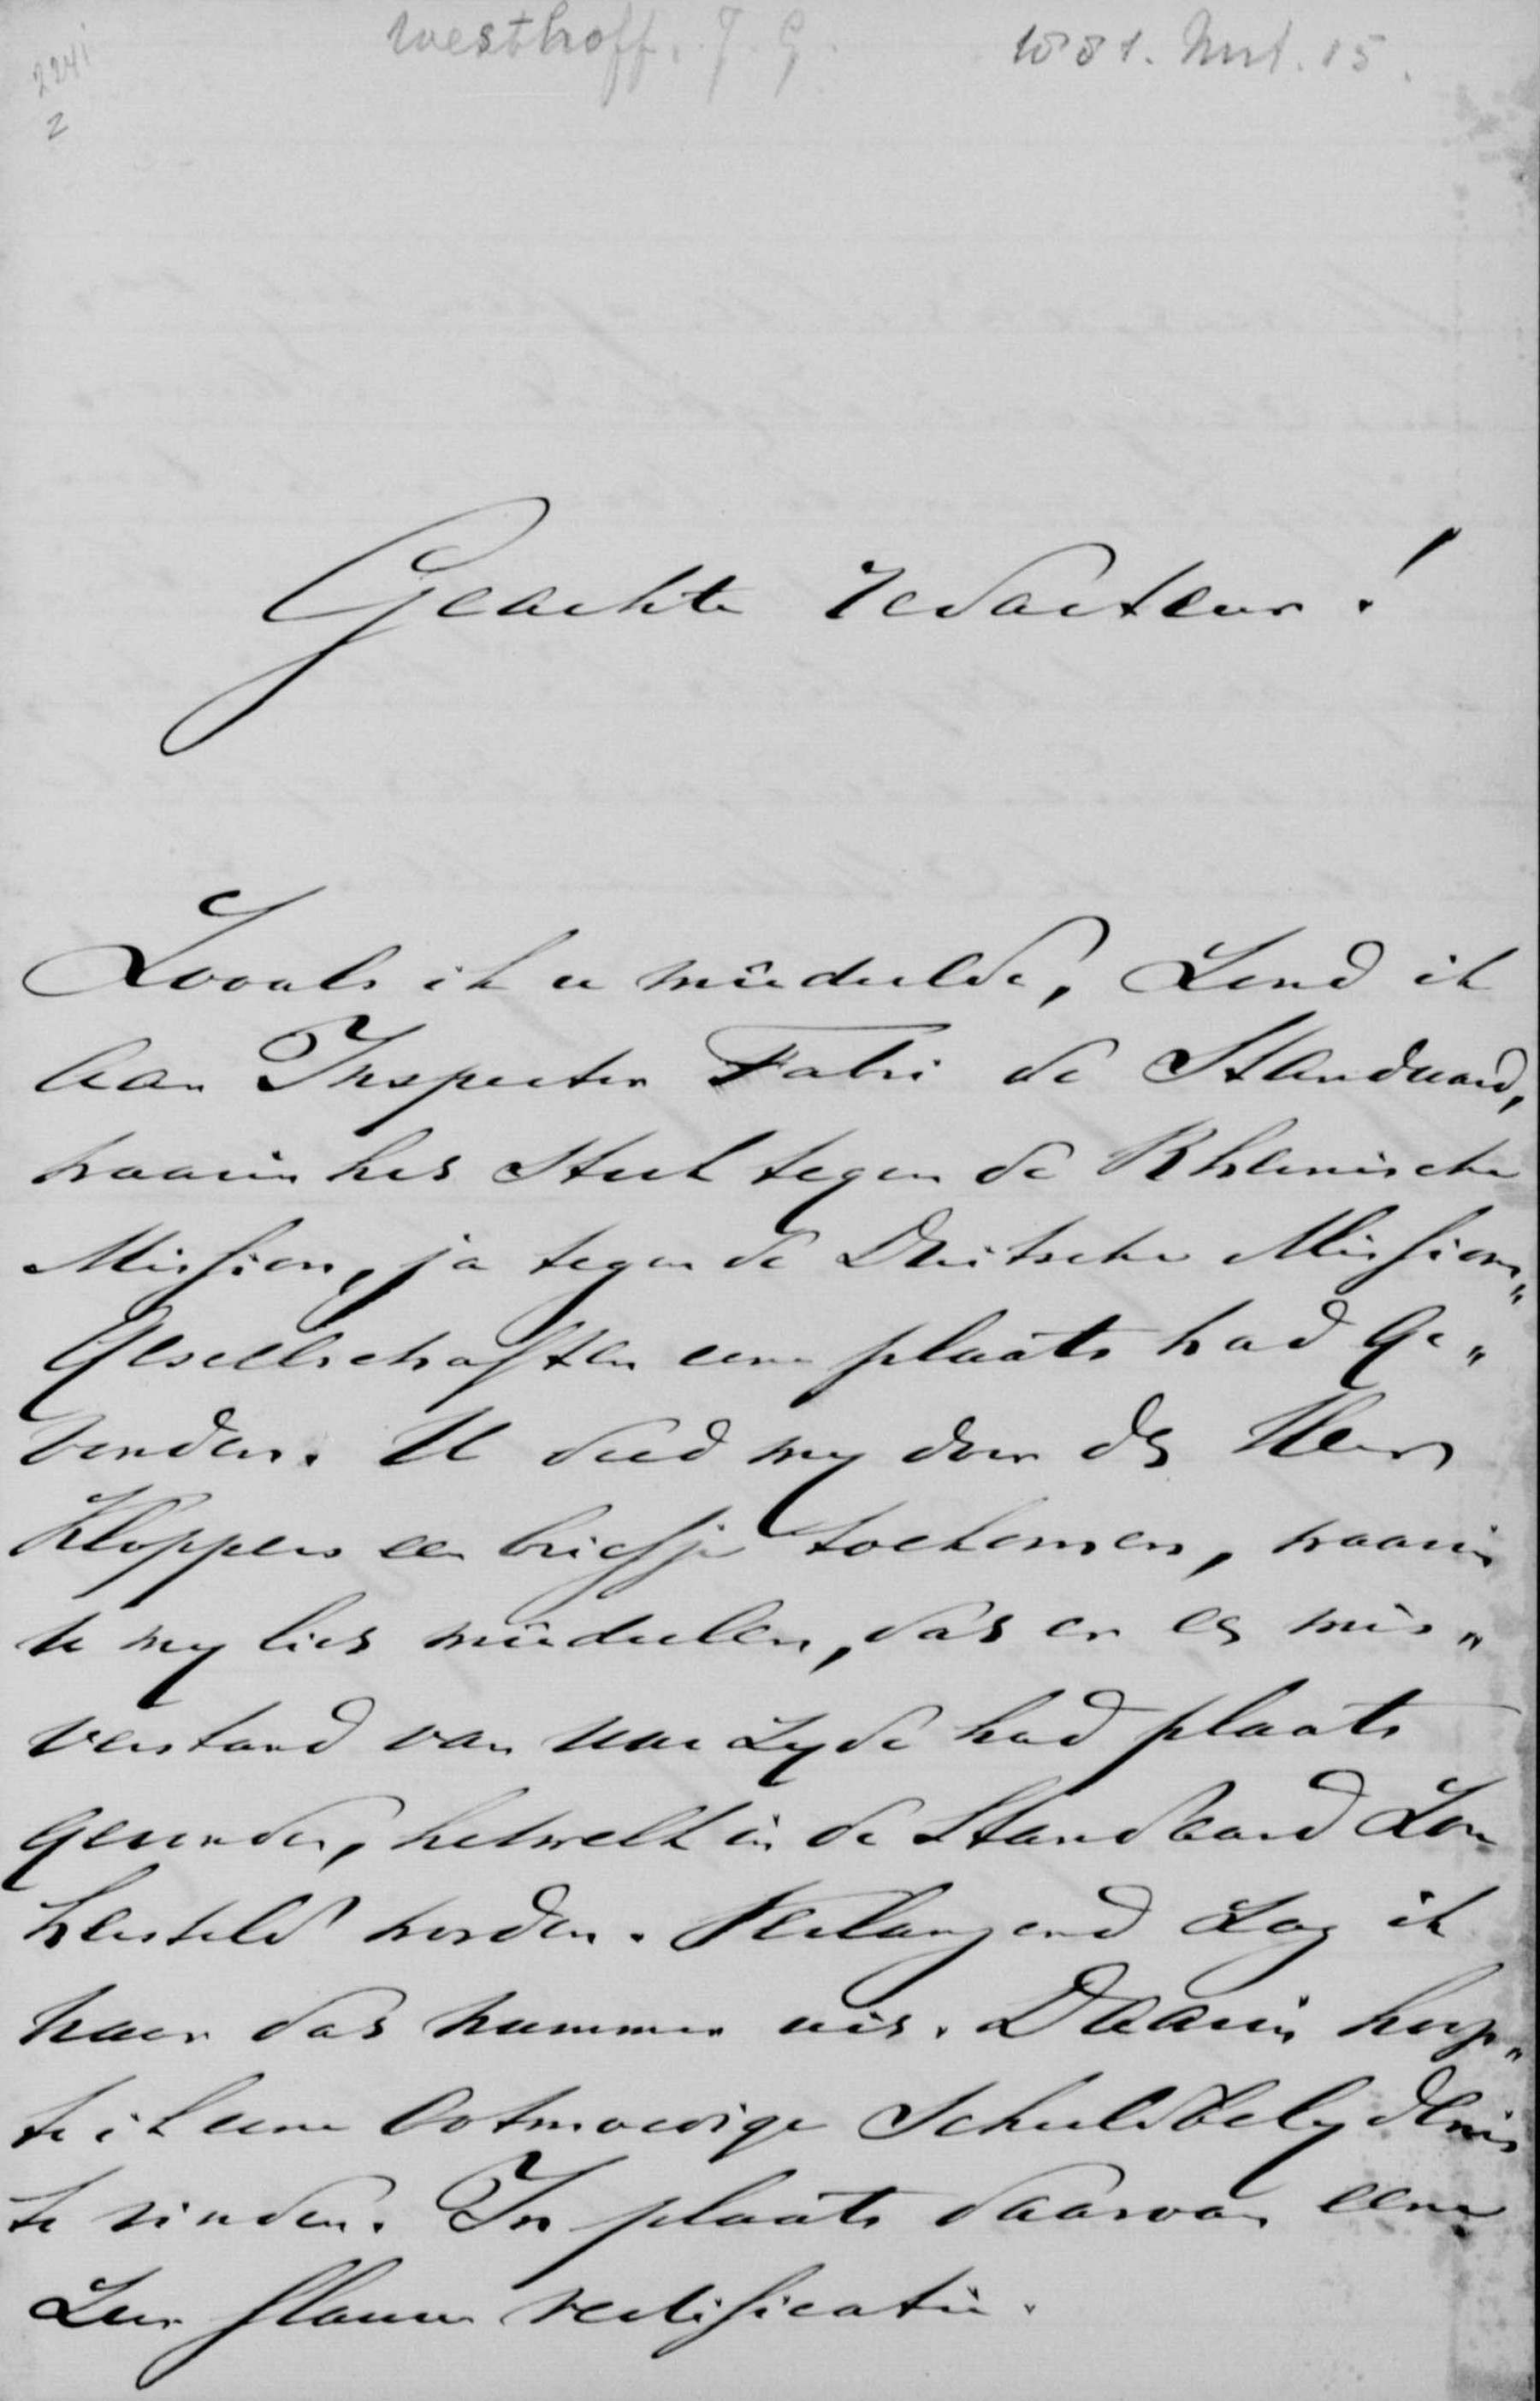 2241
2
Westhoff. J. G.
1881. Mrt. 15.
Geachte redacteur!
Zooals ik u meedeelde, zend ik
aan Inspector Fabri de Standaard,
waarin het stuk tegen de Rheinische
Mission, ja tegen de Deutsche Mission„
Gesellschaften eene plaats had ge„
vonden. U deed my door den Heer
Kloppers een briefje toekomen, waarin
u my liet meedeelen, dat er een mis„
verstand van uwe zyde had plaats
gevonden, hetwelk in de Standaard zou
hersteld worden. Verlangend zag ik
naar dat nummer uit. Daarin hoop„
te ik eene ootmoedige schuldbelydenis
te vinden. In plaats daarvan eene
zeer flauwe rectificatie.